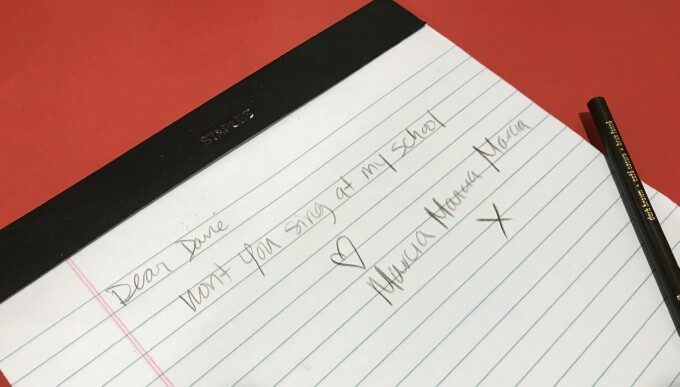 STAPLES
Dear Davie
Wont you sing at my school
♡
Marcia Marcia Marcia
X